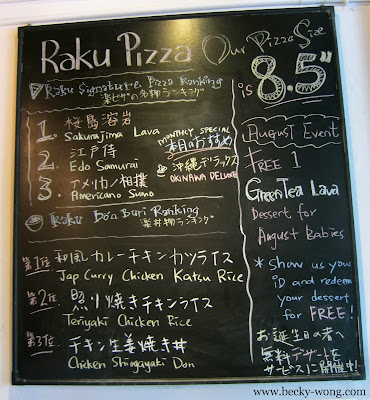 Raku Pizza
Raku Signature Pizza Ranking
楽ピザの名物ランキング
1. 桜島溶岩
Sakurajima Lava
2. 江戸侍
Edo Samurai
3. アメリカノ相撲
Americano Sumo
MONTHLY SPECIAL
本月のおすすめ
沖縄デラックス
OKINAWA DELUXE
Raku Don Buri Ranking
楽丼物ランキング
第1位 和風カレーチキンカツライス
Jap Curry Chicken Katsu Rice
第2位 照り焼きチキンライス
Teriyaki Chicken Rice
第3位 チキン生姜焼き丼
Chicken Shiogayaki Don
Our Pizza Size
is 8.5"
August Event
FREE 1
Green Tea Lava
Dessert for
August Babies
* Show us your
ID and redeem
your dessert
for FREE!
お誕生日の者へ
無料デザートを
サービスに開催中!
www.becky-wong.com